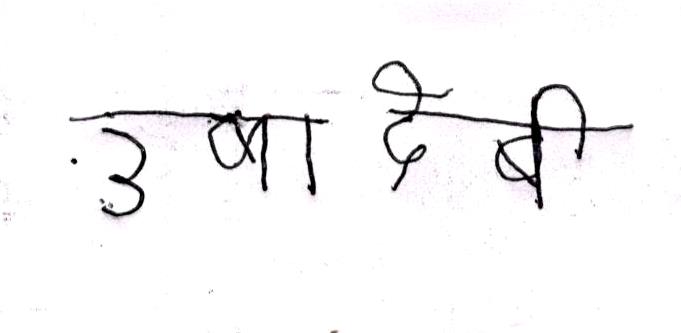 उषा देवी